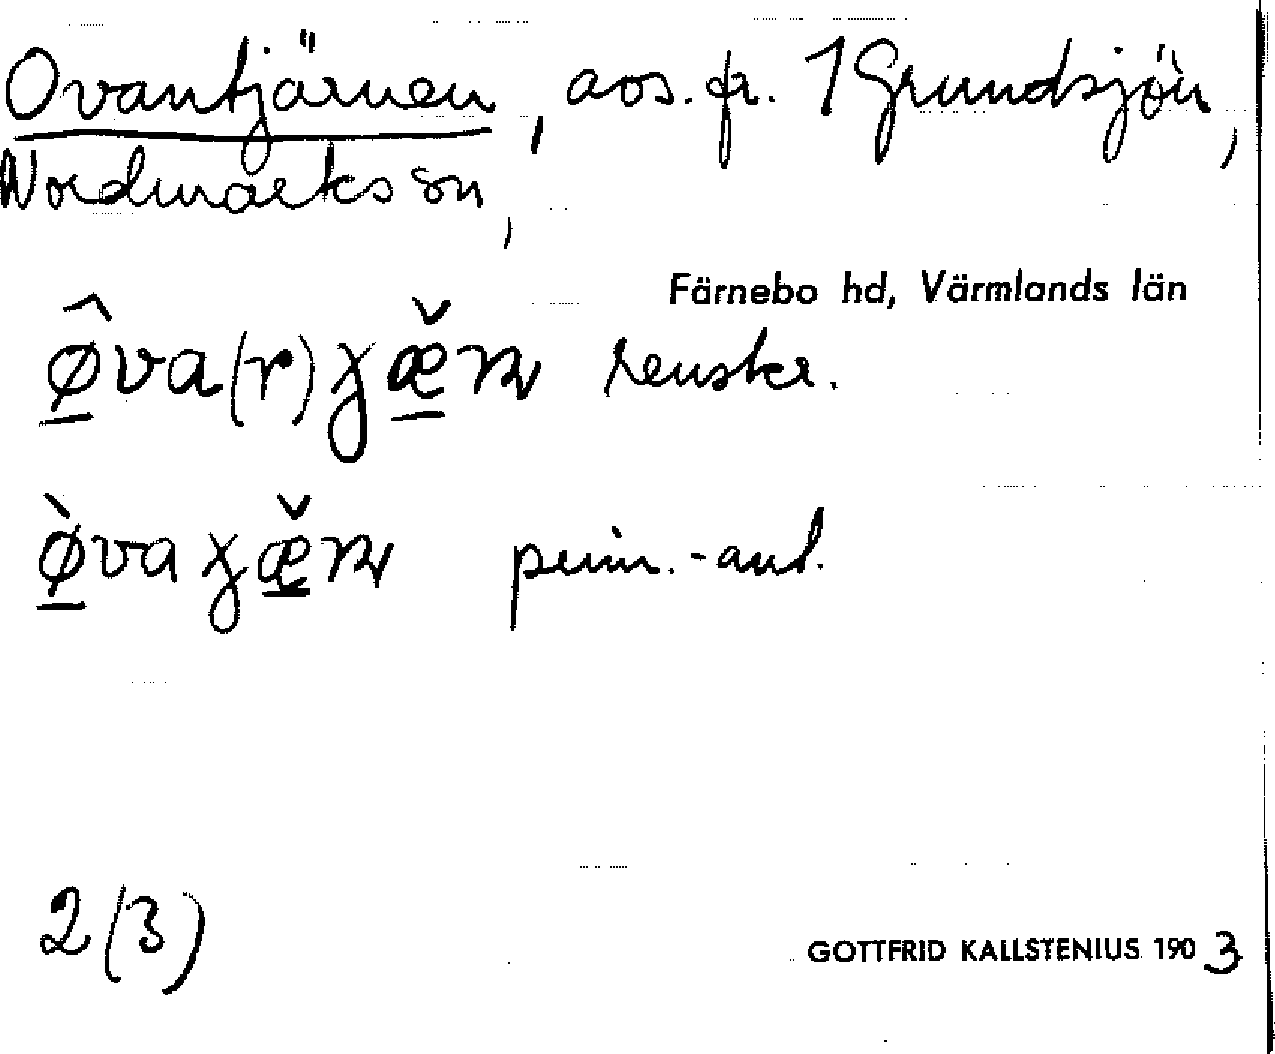 Ovantjärnen, aos. fr. 1 Grundsjön,
Nordmarks sn,
Färnebo hd, Värmlands län
renskr.
prim.-ant.
2(3)
GOTTFRID KALLSTENIUS 1903